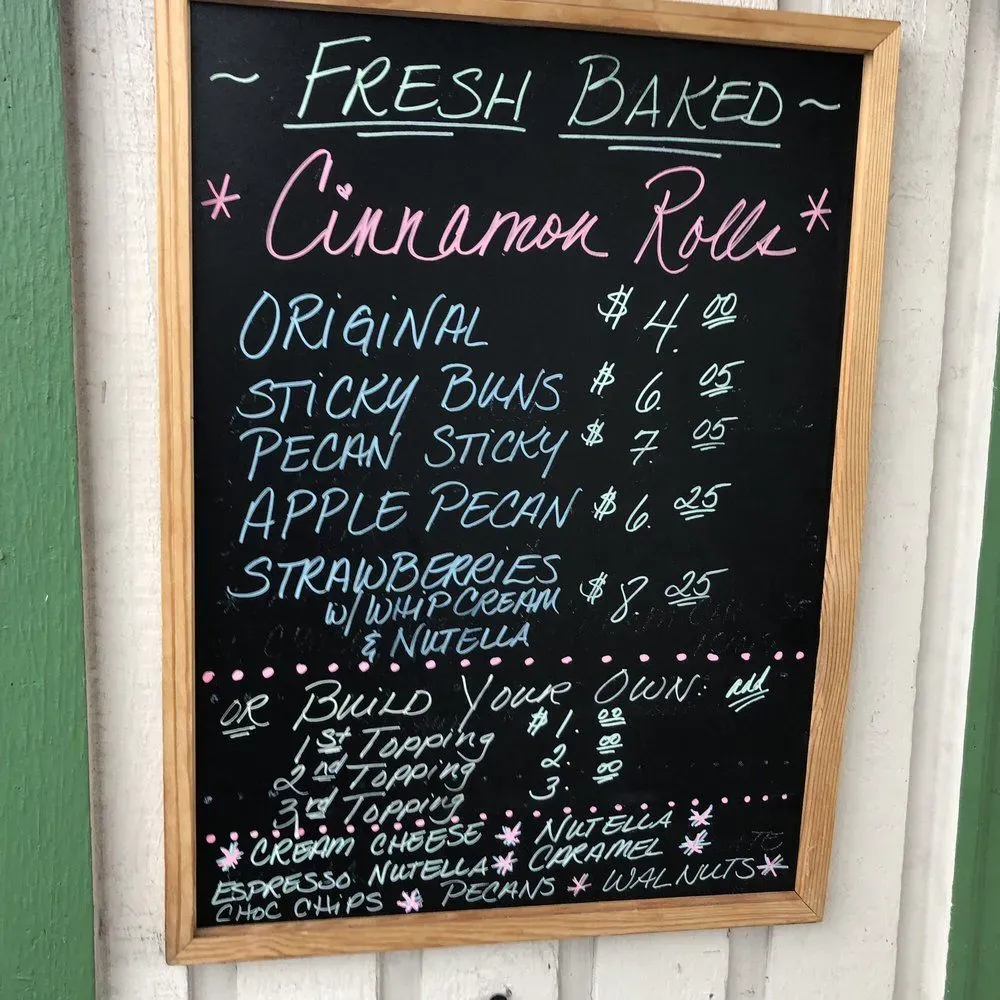 ~ FRESH BAKED ~
* Cinnamon Rolls *
ORIGINAL $4.00
STICKY BUNS $6.05
PECAN STICKY $7.05
APPLE PECAN $6.25
STRAWBERRIES $8.25
W/ WHIPCREAM
& NUTELLA
OR BUILD YOUR OWN: add
1st TOPPING $1.00
2nd TOPPING 2.00
3rd TOPPING 3.00
* CREAM CHEESE * NUTELLA *
ESPRESSO NUTELLA * CARAMEL *
CHOC CHIPS * PECANS * WALNUTS *